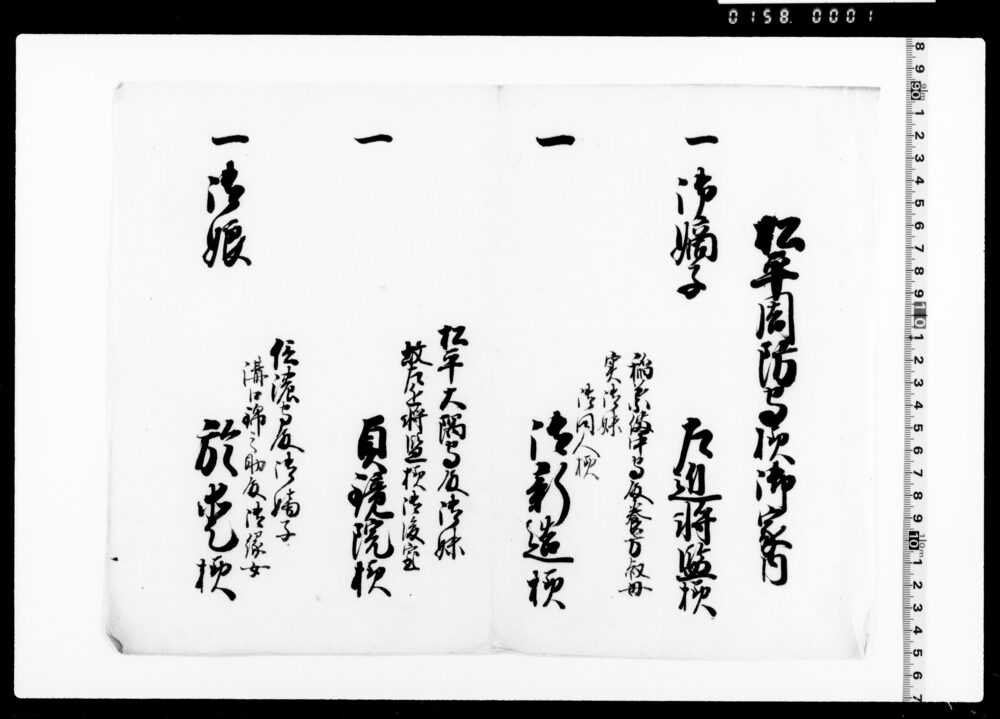 0158. 0001
松平周防守様御家内
一 御嫡子 左近将監様
稲葉能登守殿養方叔母
実御妹
御同人様
一 御新造様
松平大隅守殿御妹
故左近将監様御後室
一 貞鏡院様
信濃守殿御嫡子
溝口錦之助殿御縁女
一 御娘 於光様
8 9 90 1 2 3 4 5 6 7 8 9 10 1 2 3 4 5 6 7 8 9 10 1 2 3 4 5 6 7